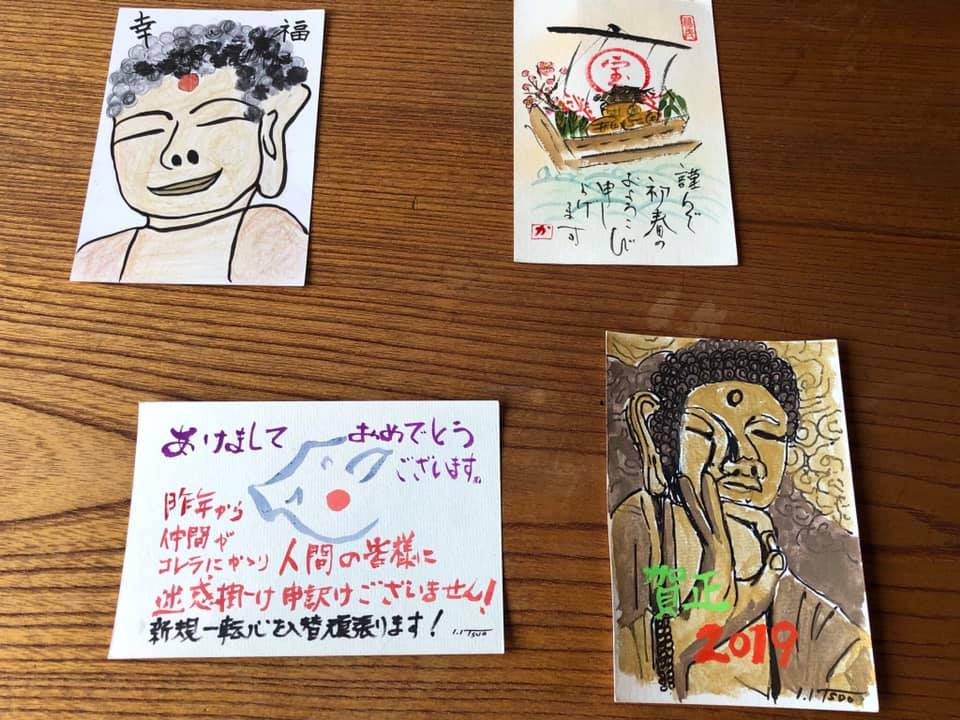 幸 福
宝
謹んで
初春の
およろこび
申し
上げ
ます
か
あけまして おめでとう
ございます。
昨年から
仲間が
コレラにかゝり 人間の皆様に
迷惑掛け 申訳けございません!
新規一転心を入替頑張ります!
賀正
2019